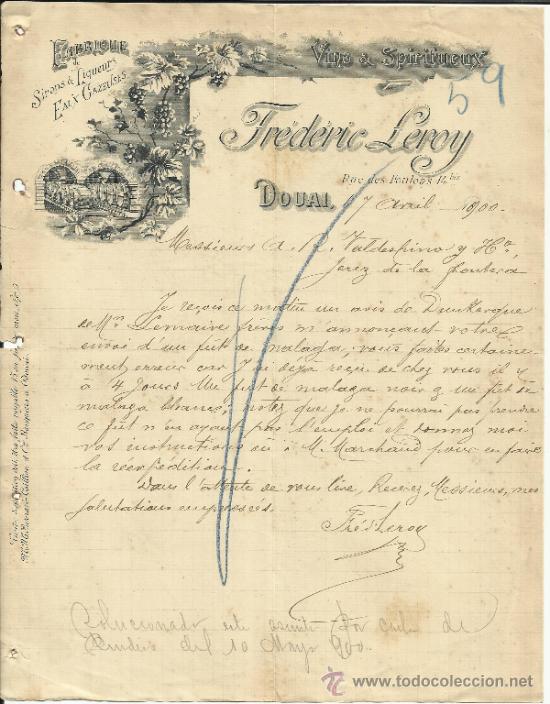 FABRIQUE
de
Sirops & Liqueurs
EAUX GAZEUSES
Vins & Spiritueux
59
Frédéric Leroy
Rue des Foulons 12 bis
DOUAI, 17 avril 1900
Messieurs A. R. Valdespino y Hº,
Jerez de la frontera
Je reçois ce matin un avis de Dunkerque
de Mrs Lemaire frères m'annonçant votre
envoi d'un fût de malaga, vous faites certaine
ment erreur car j'ai déjà reçu de chez vous il y
à 4 jours un fût de malaga noir & un fût de
malaga blanc, notez que je ne pourrai pas prendre
ce fût n'en ayant pas l'emploi et donnez moi
vos instructions ou à M. Marchand pour en faire
la réexpédition.
Dans l'attente de vous lire, Recevez, Messieurs, mes
salutations empressées.
Fred Leroy
Solucionado este asunto por
del 10 Mayo 900.
todocoleccion.net